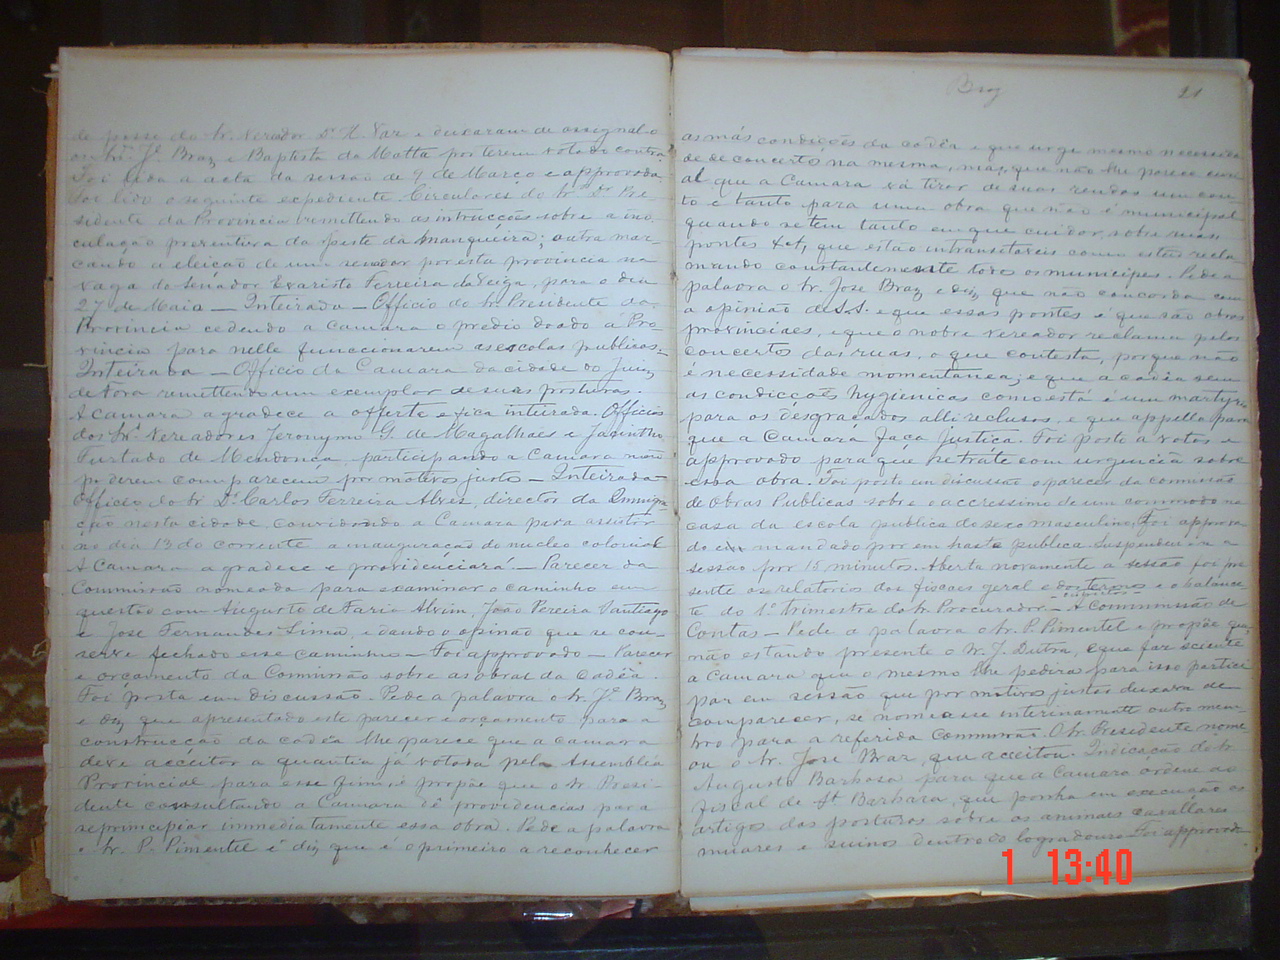 de posse do Sr. Vereador Dr. H. Vaz e deixaram de assignal-o
os Srs. Je. Braz e Baptista da Motta por terem votado contra
Foi lida a acta da sessão de 9 de Março e approvada.
Foi lido o seguinte expediente. Circulares do Sr. Dr. Pre-
sidente da Provincia remittendo as intrucções sobre a ino-
culação preventiva da peste da manqueira; outra mar-
cando a eleição de um senador por esta provincia na
vaga do Senador Evaristo Ferreira da Veiga, para o dia
27 de Maio — Inteirada — Officio do Sr. Presidente da
Provincia cedendo a Camara o predio doado á Pro-
vincia para nelle funccionarem as escolas publicas—
Inteirada — Officio da Camara da cidade do Juiz
de Fora remettendo um exemplar de suas posturas.
A Camara agradece a offerta e fica inteirada. Officios
dos Srs. Vereadores Jeronymo G. de Magalhães e Jacintho
Furtado de Mendonça participando a Camara não
poderem comparecem por motivos justos — Inteirada
Officio do Sr. Dr. Carlos Ferreira Alves, director da Immigra
ção nesta cidade, convidando a Camara para assistir
no dia 13 do corrente a inauguração do nucleo colonial
A Camara agradece e providenciará — Parecer da
Commissão nomeada para examinar o caminho em
questão com Augusto de Faria Alvim, João Pereira Santiago
e Jose Fernandes Lima, e dando o opinão que se con-
serve fechado esse caminho — Foi approvado — Parecer
e orçamento da Commissão sobre as obras da Cadêa.
Foi posta em discussão. Pede a palavra o Sr. Je. Braz
e diz que apresentado este parecer e orçamento para a
construcção da cadêa lhe parece que a camara
deve acceitar a quantia já votada pela Assembléa
Provincial para esse fim, e propõe que o Sr. Presi-
dente consultando a Camara dê providencias para
se principiar immediatamente essa obra. Pede a palavra
o Sr. P. Pimentel e diz que é o primeiro a reconhecer
Braz
21
as más condições da cadêa e que urge mesmo necessida
de de concerto na mesma, mas, que não lhe parece
al que a Camara vá tirar de suas rendas um con-
to e tanto para uma obra que não é municipal
quando se tem tanto em que cuidar, sobre ruas,
pontes &&, que estão intransitaveis como estão recla
mando constantemente todos os municipes. Pede a
palavra o Sr. Jose Braz e diz que não concorda com
a opinião de S.S. e que essas pontes é que são obras
provinciaes, e que o nobre vereador reclama pelos
concertos das ruas, o que contesta, porque não
é necessidade momentanea; e que a cadêa sem
as condições hygienicas como está é um martyrio
para os desgraçados alli reclusos, e que appella para
que a Camara faça justiça. Foi posto a votos e
approvado para que se trate com urgencia sobre
essa obra. Foi posto em discussão o parecer da commissão
de Obras Publicas sobre o accressimo de um commodo na
casa da escola publica do sexo masculino, Foi approva
do e mandado por em hasta publica. Suspendeu-se a
sessão por 15 minutos. Aberta novamente a sessão foi pre
sente os relatorios dos fiscaes geral e dos ternos e o balance-
te do 1º trimestre do Sr. Procurador — A Commissão de
Contas — Pede a palavra o Sr. P. Pimentel e propõe que,
não estando presente o Sr. J. Dutra, e que faz sciente
a Camara que o mesmo lhe pedira para isso partici
par em sessão que por motivos justos deixava de
comparecer, se nomeasse interinamente outro mem-
bro para a referida Commissão. O Sr. Presidente nome
ou o Sr. Jose Braz, que acceitou. Indicação do Sr.
Augusto Barbosa para que a Camara ordene ao
fiscal de Sta Barbara, que ponha em execução os
artigos das posturas sobre os animaes cavallares
muares e suinos dentro do logradouro. Foi approvada
1 13:40